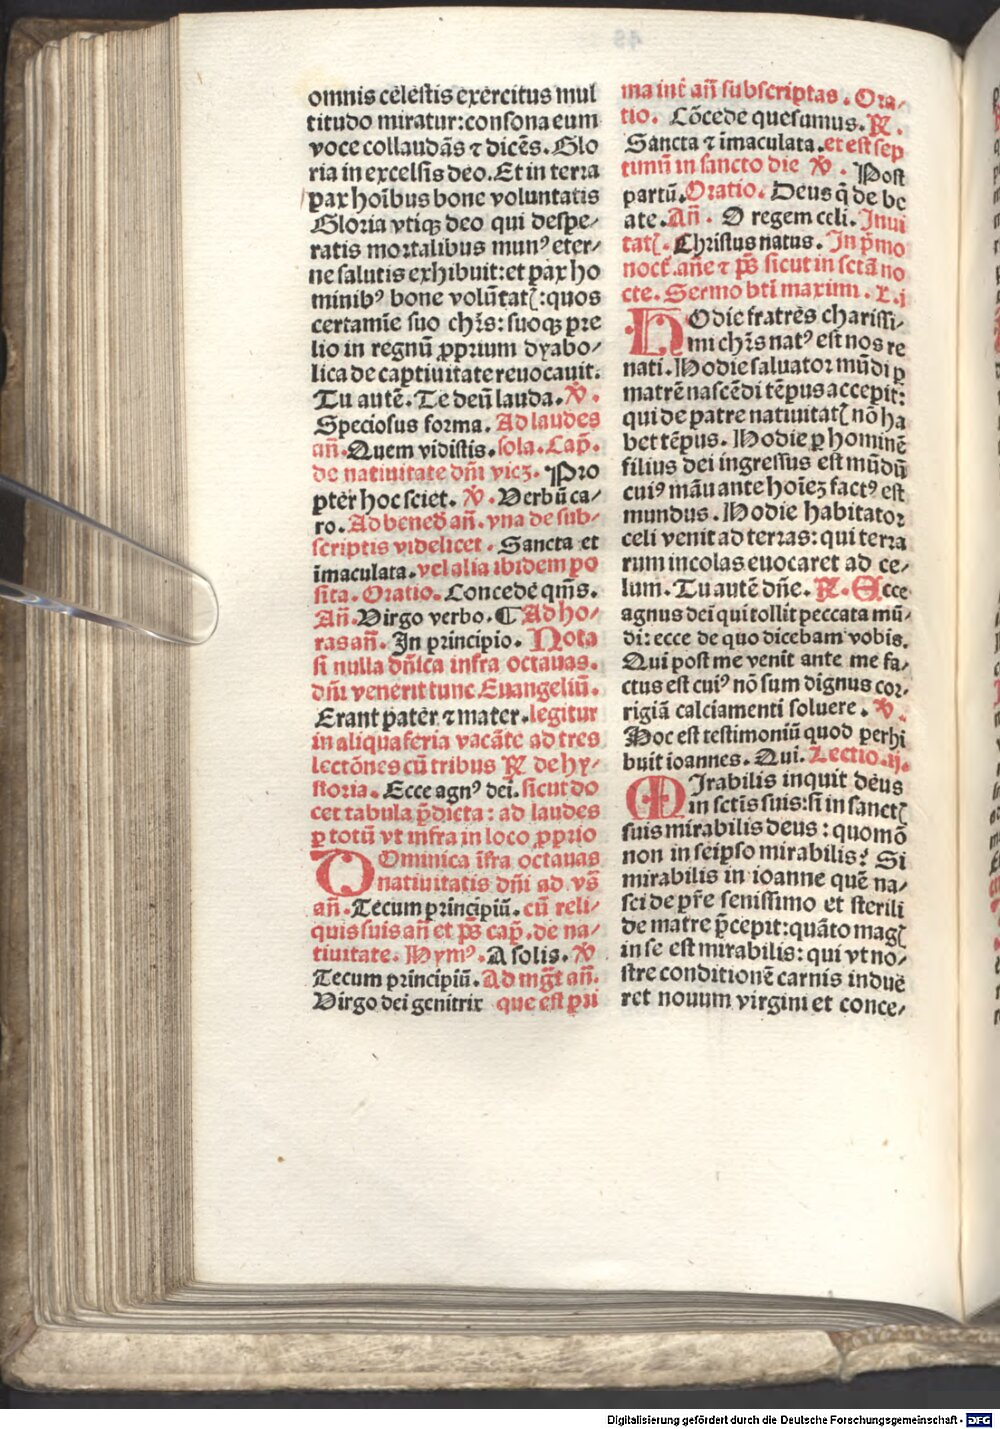 omnis celestis exercitus mul
titudo miratur:consona eum
voce collaudãs ⁊ dicẽs. Glo
ria in excelsis deo. Et in terra
pax hoĩbus bone voluntatis
Gloria vtiqꝫ deo qui despe⸗
ratis mortalibus munꝰ eter⸗
ne salutis exhibuit:et pax ho
minibꝰ bone volũtatꝭ:quos
certamĩe suo chr̃s: suoqꝫ pre
lio in regnũ ꝓprium dyabo⸗
lica de captiuitate reuocauit.
Tu autẽ. Te deũ lauda. ꝟ.
Speciosus forma. Ad laudes
añ. Quem vidistis. sola. Cap̃.
de natiuitate dñi vicꝫ. Pro
pter hoc sciet. ꝟ. Verbũ ca⸗
ro. Ad bened̃ añ. vna de sub⸗
scriptis videlicet. Sancta et
ĩmaculata. vel alia ibidem po
sita. Oratio. Concede qm̃s.
Añ. Virgo verbo. ¶ Ad ho⸗
ras añ. In principio. Nota
si nulla dñica infra octauas.
dñi venerit tunc Euangeliũ.
Erant pater ⁊ mater. legitur
in aliqua feria vacãte ad tres
lectõnes cũ tribus ℞ de hy⸗
storia. Ecce agnꝰ dei. sicut do
cet tabula p̃dicta: ad laudes
ꝑ totũ vt infra in loco ꝓprio
DOminica ĩfra octauas
natiuitatis dñi ad vs̃
añ. Tecum principiũ. cũ reli⸗
quis suis añ et ps̃ cap̃. de na⸗
tiuitate. Hymꝰ. A solis. ꝟ
Tecum principiũ. Ad mgt̃ añ.
Virgo dei genitrix que est pri
ma int̃ añ subscriptas. Ora⸗
tio. Cõcede quesumus. ℞.
Sancta ⁊ ĩmaculata. et est sep
timũ in sancto die ꝟ. Post
partũ. Oratio. Deus q̃ de be
ate. Añ. O regem celi. Inui
tatꝭ. Christus natus. In p̃mo
noct̃. añe ⁊ ps̃ sicut in sctã no
cte. Sermo bti maximi. L. j
HOdie fratres charissi⸗
mi chr̃s natꝰ est nos re
nati. Hodie saluator mũdi ꝑ
matrẽ nascẽdi tẽpus accepit:
qui de patre natiuitatꝭ nõ ha
bet tẽpus. Hodie ꝑ hominẽ
filius dei ingressus est mũdũ
cuiꝰ mãu ante hoĩeꝫ factꝰ est
mundus. Hodie habitator
celi venit ad terras: qui terra
rum incolas euocaret ad ce⸗
lum. Tu autẽ dñe. ℞. Ecce
agnus dei qui tollit peccata mũ⸗
di: ecce de quo dicebam vobis.
Qui post me venit ante me fa⸗
ctus est cuiꝰ nõ sum dignus cor⸗
rigiã calciamenti soluere. ꝟ.
Hoc est testimoniũ quod perhi
buit ioannes. Qui. Lectio. ij.
MIrabilis inquit deus
in sctĩs suis: si in sanctꝭ
suis mirabilis deus: quomõ
non in seipso mirabilis? Si
mirabilis in ioanne quẽ na⸗
sci de pr̃e senissimo et sterili
de matre p̃cepit: quãto magꝭ
in se est mirabilis: qui vt no⸗
stre conditionẽ carnis induе
ret nouum virgini et conce⸗
Digitalisierung gefördert durch die Deutsche Forschungsgemeinschaft - DFG